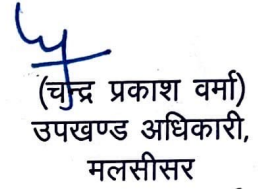 (चन्द्र प्रकाश वर्मा)
उपखण्ड अधिकारी,
मलसीसर